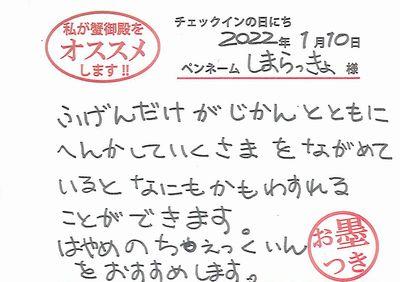 私が蟹御殿を
オススメ
します!!
チェックインの日にち
2022年 1月10日
ペンネーム しまらっきょ 様
ふげんだけ が じかん とともに
へんかしていくさま を ながめて
いると なにもかも わすれる
ことが できます。
はやめの ちぇっくいん
を おすすめします。
お墨
つき